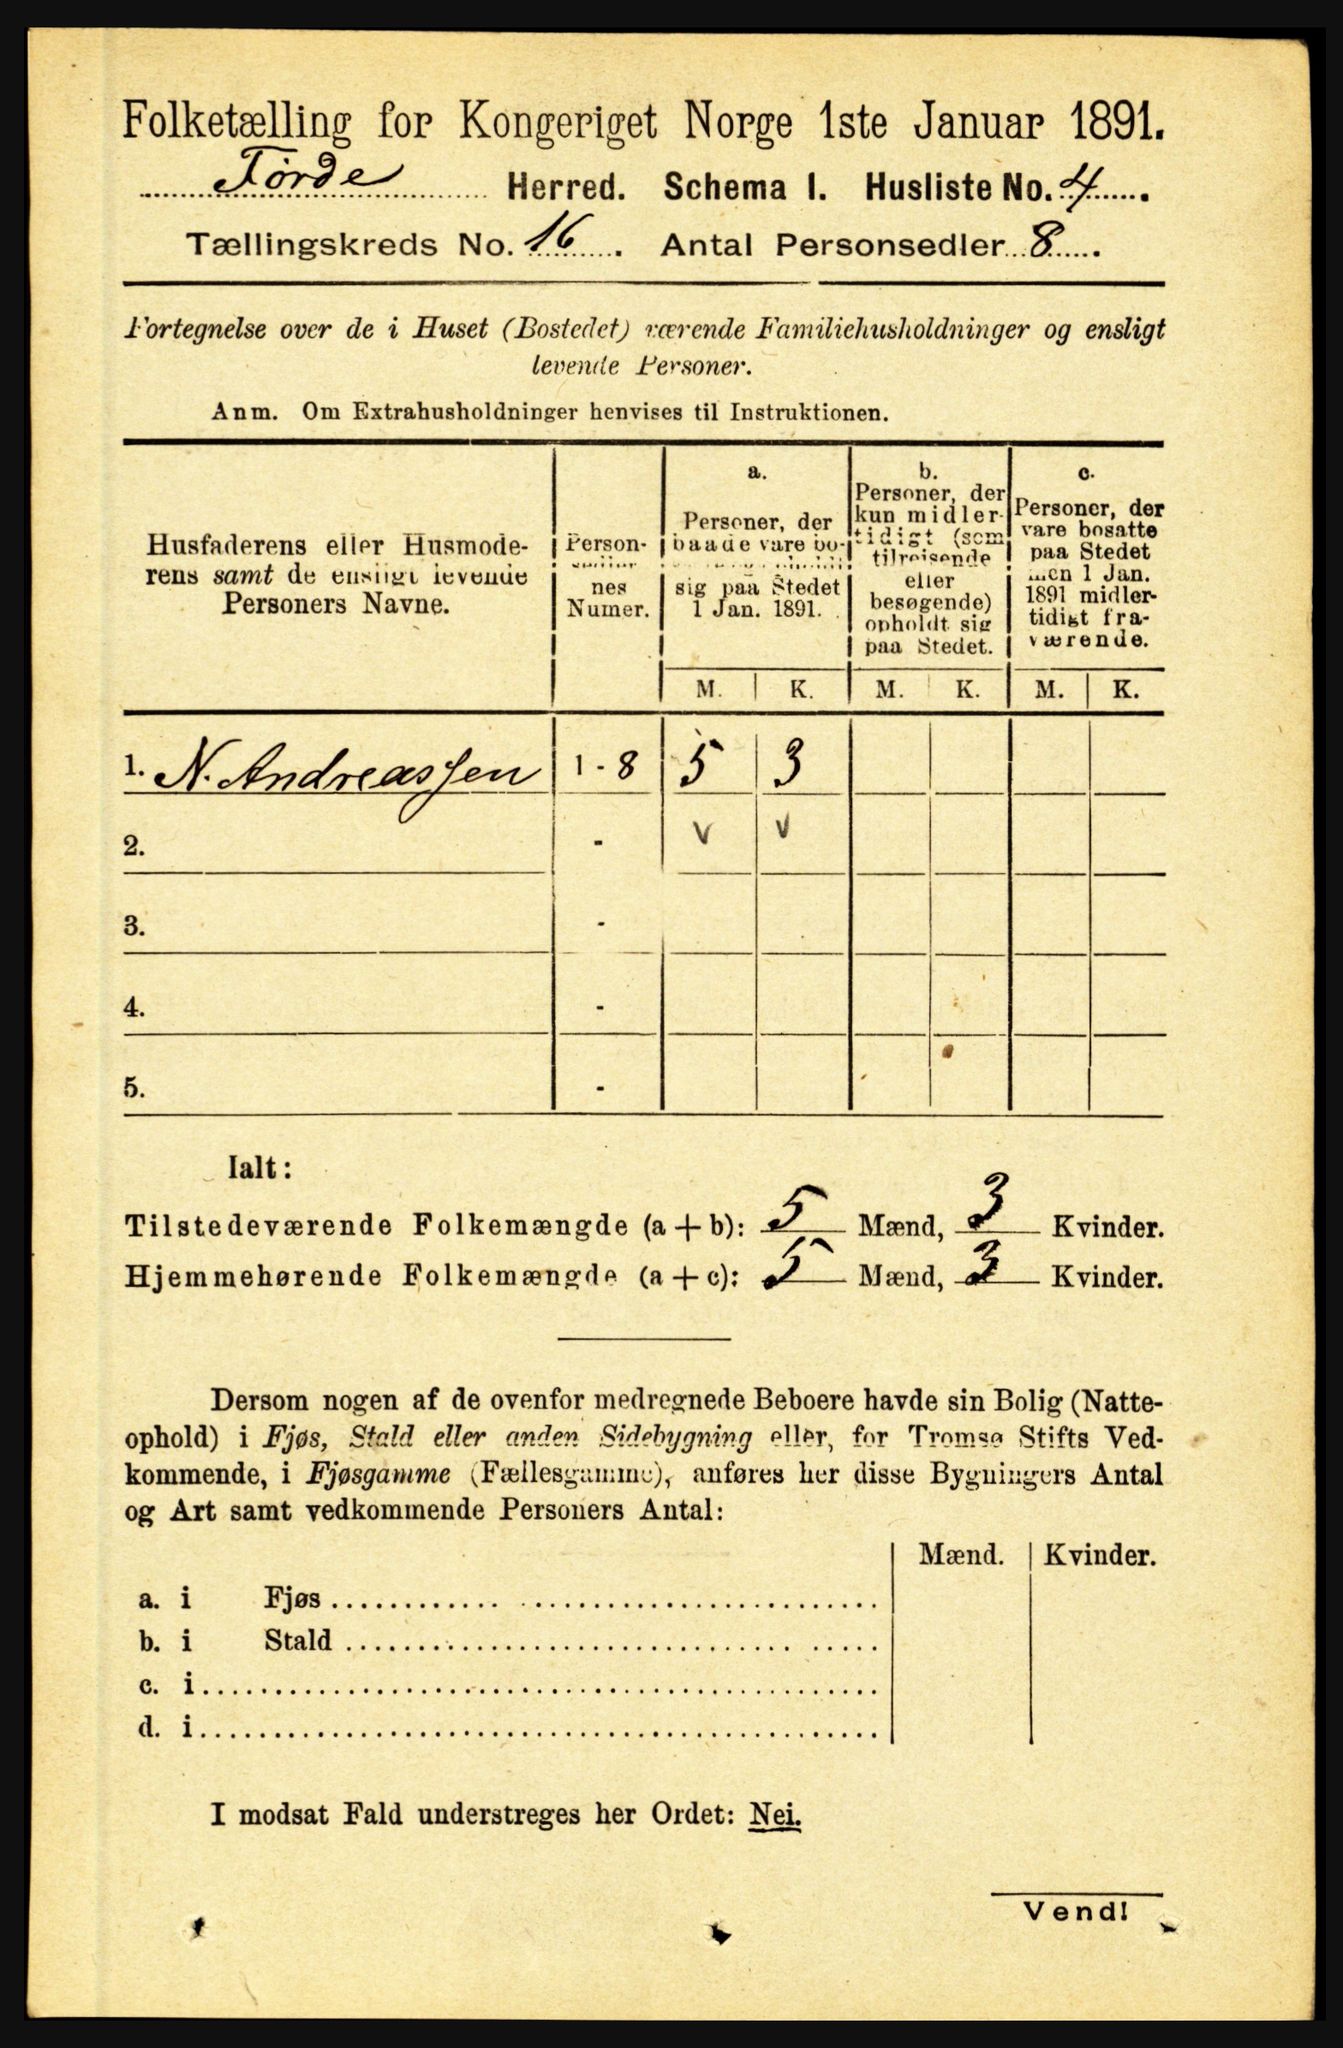 Folketælling for Kongeriget Norge 1ste Januar 1891.
Førde Herred. Schema I. Husliste No. 4.
Tællingskreds No. 16. Antal Personsedler 8.
Fortegnelse over de i Huset (Bostedet) værende Familiehusholdninger og ensligt
levende Personer.
Anm. Om Extrahusholdninger henvises til Instruktionen.
Husfaderens eller Husmode-
rens samt de ensligt levende
Personers Navne.
Person-
nes
Numer.
a.
Personer, der
baade vare bo-
sig paa Stedet
1 Jan. 1891.
b.
Personer, der
kun midler-
tidigt (som
tilreisende
eller
besøgende)
opholdt sig
paa Stedet.
c.
Personer, der
vare bosatte
paa Stedet
men 1 Jan.
1891 midler-
tidigt fra-
værende.
M. K. M. K. M. K.
1. N. Andreassen 1 - 8 5 3
2. - v v
3. -
4. -
5. -
Ialt:
Tilstedeværende Folkemængde (a + b): 5 Mænd, 3 Kvinder.
Hjemmehørende Folkemængde (a + c): 5 Mænd, 3 Kvinder.
Dersom nogen af de ovenfor medregnede Beboere havde sin Bolig (Natte-
ophold) i Fjøs, Stald eller anden Sidebygning eller, for Tromsø Stifts Ved-
kommende, i Fjøsgamme (Fællesgamme), anføres her disse Bygningers Antal
og Art samt vedkommende Personers Antal:
Mænd. Kvinder.
a. i Fjøs
b. i Stald
c. i
d. i
I modsat Fald understreges her Ordet: Nei.
Vend!